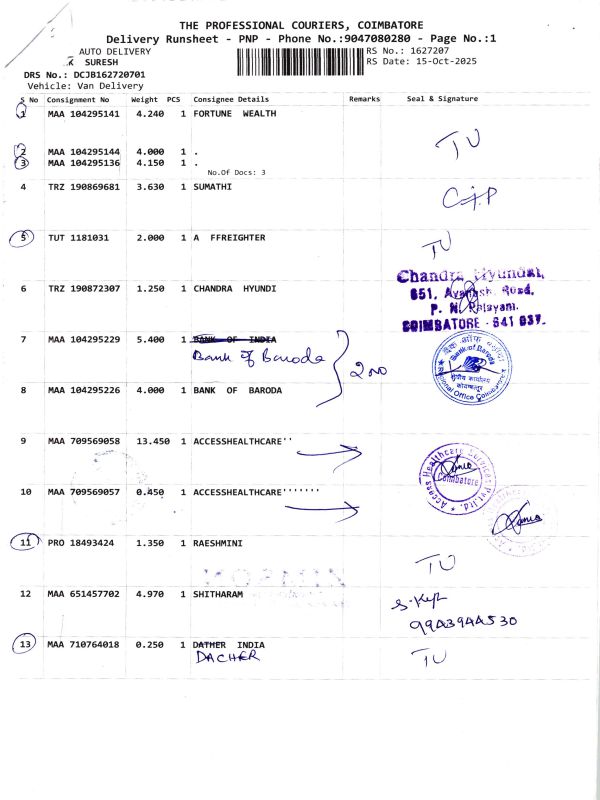 THE PROFESSIONAL COURIERS, COIMBATORE
Delivery Runsheet - PNP - Phone No.:9047080280 - Page No.:1
AUTO DELIVERY
K SURESH
RS No.: 1627207
RS Date: 15-Oct-2025
DRS No.: DCJB162720701
Vehicle: Van Delivery
S No Consignment No Weight PCS Consignee Details Remarks Seal & Signature
1 MAA 104295141 4.240 1 FORTUNE WEALTH
2 MAA 104295144 4.000 1 .
TU
3 MAA 104295136 4.150 1 .
No.Of Docs: 3
4 TRZ 190869681 3.630 1 SUMATHI
5 TUT 1181031 2.000 1 A FFREIGHTER
TU
6 TRZ 190872307 1.250 1 CHANDRA HYUNDI
Chandra Hyundai,
651, Avanashi Road,
P. N. Palayam,
COIMBATORE - 641 037.
7 MAA 104295229 5.400 1 BANK OF INDIA
Bank of Baroda
2 no
Bank of Baroda
क्षेत्रीय कार्यालय
कोयम्बत्तूर
Regional Office Coimbatore
8 MAA 104295226 4.000 1 BANK OF BARODA
9 MAA 709569058 13.450 1 ACCESSHEALTHCARE''
Access Healthcare Services Pvt.Ltd.
Coimbatore
10 MAA 709569057 0.450 1 ACCESSHEALTHCARE'''''''
11 PRO 18493424 1.350 1 RAESHMINI
TU
12 MAA 651457702 4.970 1 SHITHARAM
9943944530
13 MAA 710764018 0.250 1 DATHER INDIA
DACHER
TU